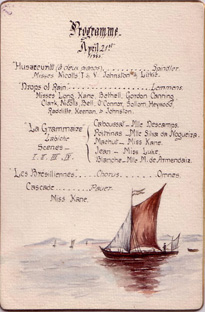 Programme.
April 21st
"Husarenritt (à deux pianos) Spindler.
Misses Nicolls T. & V. Johnston & Luke.
Drops of Rain Lemmens.
Misses Long, Kane, Bethell, Gordon Canning
Clark, Nicolls, Bell, O'Connor, Sallom, Heywood
Radcliffe, Keenan, & Johnston.
"La Grammaire
Labiche
Scenes
I. II. III. IV.
Caboussat — Mlle Descamps.
Poitrinas — Mlle Silva de Nogueira.
Machut — Miss Kane.
Jean — Miss Luke.
Blanche — Mlle M. de Armendaiz.
"Les Brésiliennes Chorus Ornes.
Cascade Pauer.
Miss Kane.